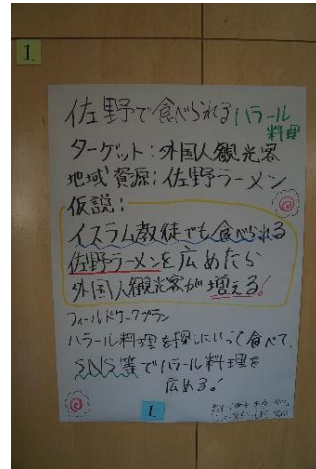 1
佐野で食べられるハラール
料理
ターゲット:外国人観光客
地域資源:佐野ラーメン
仮説:
イスラム教徒でも食べられる
佐野ラーメンを広めたら
外国人観光客が増える!
フィールドワークプラン
ハラール料理を探しにいって食べて、
SNS等でハラール料理を
広める!
1